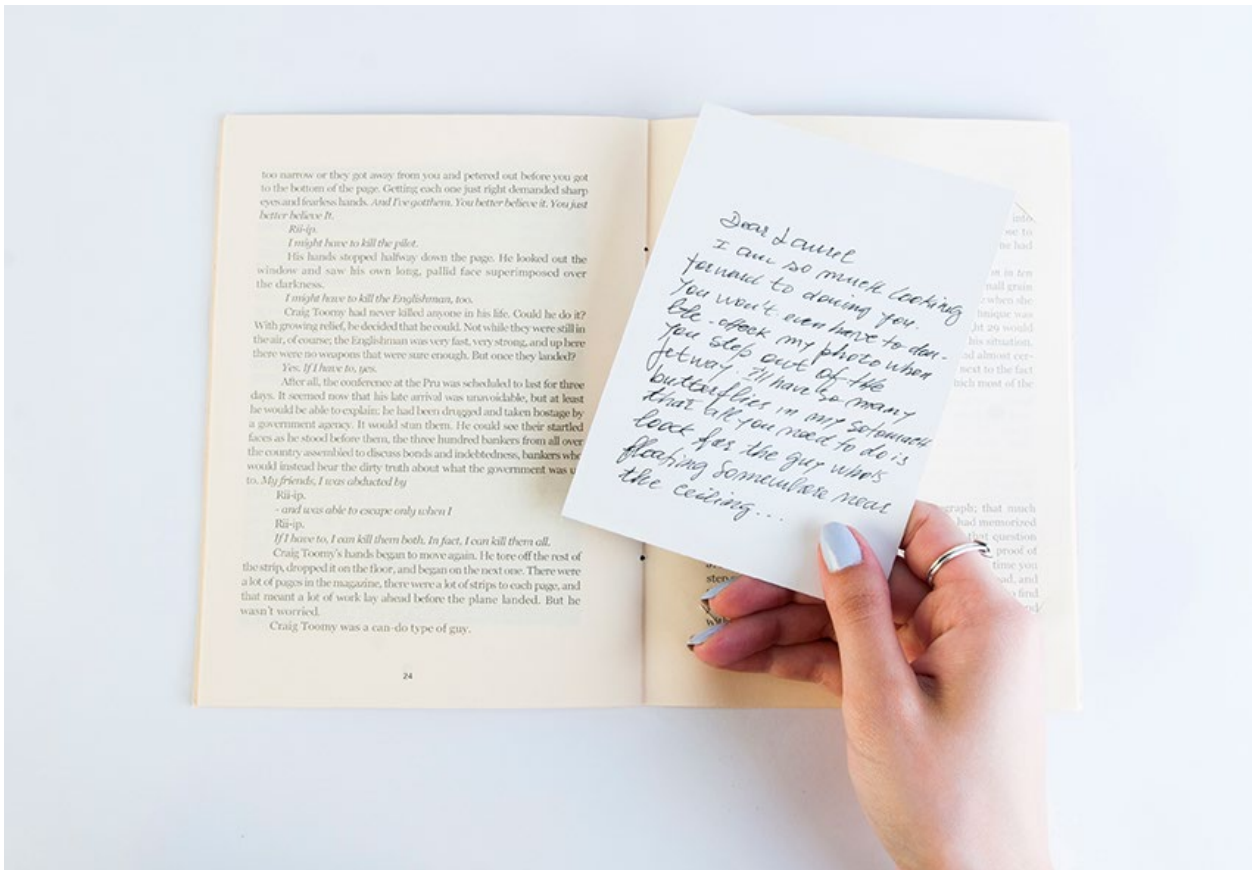 too narrow or they got away from you and petered out before you got
to the bottom of the page. Getting each one just right demanded sharp
eyes and fearless hands. And I've gotthem. You better believe it. You just
better believe It.
Rii-ip.
I might have to kill the pilot.
His hands stopped halfway down the page. He looked out the
window and saw his own long, pallid face superimposed over
the darkness.
I might have to kill the Englishman, too.
Craig Toomy had never killed anyone in his life. Could he do it?
With growing relief, he decided that he could. Not while they were still in
the air, of course; the Englishman was very fast, very strong, and up here
there were no weapons that were sure enough. But once they landed?
Yes. If I have to, yes.
After all, the conference at the Pru was scheduled to last for three
days. It seemed now that his late arrival was unavoidable, but at least
he would be able to explain: he had been drugged and taken hostage by
a government agency. It would stun them. He could see their startled
faces as he stood before them, the three hundred bankers from all over
the country assembled to discuss bonds and indebtedness, bankers who
would instead hear the dirty truth about what the government was u
to. My friends, I was abducted by
Rii-ip.
- and was able to escape only when I
Rii-ip.
If I have to, I can kill them both. In fact, I can kill them all.
Craig Toomy's hands began to move again. He tore off the rest of
the strip, dropped it on the floor, and began on the next one. There were
a lot of pages in the magazine, there were a lot of strips to each page, and
that meant a lot of work lay ahead before the plane landed. But he
wasn't worried.
Craig Toomy was a can-do type of guy.
24
Dear Laurel
I am so much looking
forward to you.
You won't even have to dou-
ble-check my photo when
you step out of the
jetway. I'll have so many
butterflies in my stomach
that all you need to do is
look for the guy who's
floating somewhere near
the ceiling...
into
se to
ne had
in ten
nall grain
when she
hnique was
29 would
his situation.
nd almost cer-
next to the fact
hich most of the
graph; that much
had memorized
that question
proof of
time you
ad, and
find